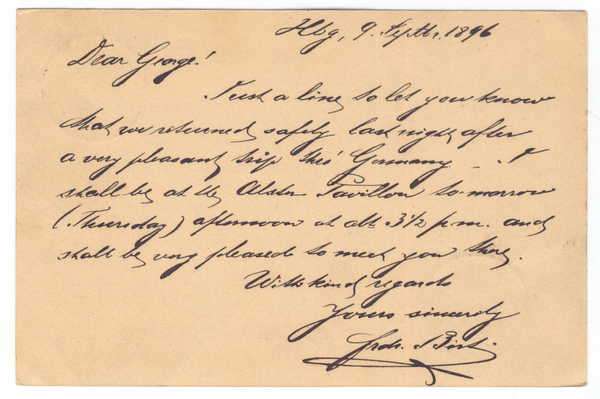 Hbg, 9. Septbr. 1896
Dear George!
Just a line to let you know
that we returned safely last night after
a very pleasant trip thro' Germany _ I
shall be at the Alster Pavillon to-morrow
(Thursday) afternoon at abt 3½ p.m. and
shall be very pleased to meet you there.
With kind regards
Yours sincerely